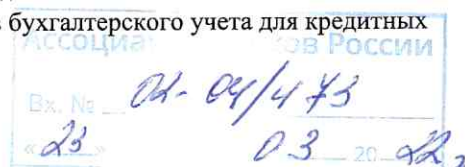 бухгалтерского учета для кредитных
Ассоциа ков России
Вх. № 02-04/473
« 23 » 03 20 22 г.